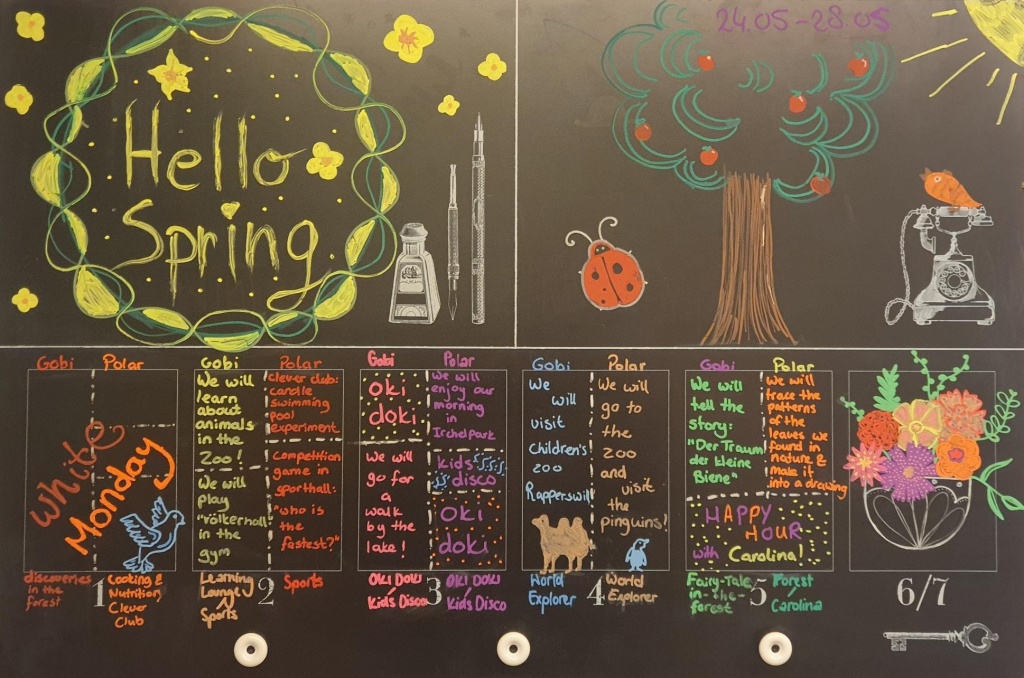 Hello
Spring.
24.05-28.05
Gobi
Polar
White
Monday
discoveries
in the
forest
1
Cooking &
Nutrition/
Clever
Club
Gobi
We will
learn
about
animals
in the
Zoo!
We will
play
"Völkerball"
in the
gym
Learning
Lounge/
Sports
2
Polar
clever club:
candle
swimming
pool
experiment
Competition
game in
sporthall:
"who is
the
fastest?"
Sports
Gobi
Oki
doki
We will
go for
a
walk
by the
lake!
Oki Doki/
Kids Disco
3
Polar
We will
enjoy our
morning
in
Irchelpark
kids
disco
Oki
doki
Oki Doki
Kids Disco
Gobi
We
will
visit
Children's
zoo
Rapperswil
World
Explorer
4
Polar
We will
go to
the
zoo
and
visit
the
pinguins!
World
Explorer
Gobi
We will
tell the
story:
"Der Traum
der kleine
Biene"
Polar
We will
trace the
patterns
of the
leaves we
found in
nature &
make it
into a drawing
HAPPY
HOUR
with Carolina!
Fairy-Tale-
in-the-
forest
5
Forest
Carolina
6/7